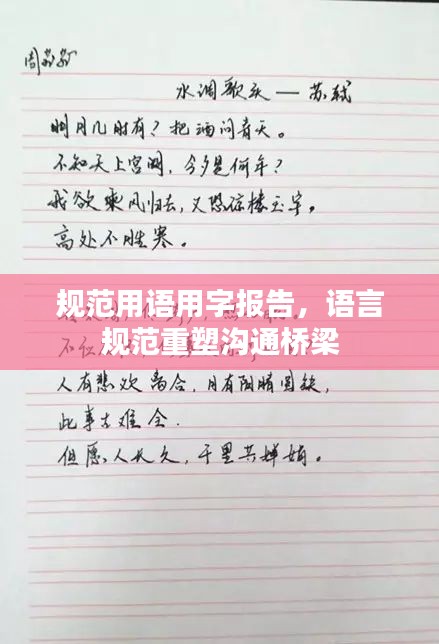 周
水调歌头 — 苏轼
明月几时有？把酒问青天。
不知天上宫阙，今夕是何年？
我欲乘风归去，又恐琼楼玉宇，
高处不胜寒。
规范用语用字报告，语言
规范重塑沟通桥梁
人有悲欢离合，月有阴晴圆缺，
此事古难全.
但愿人长久，千里共婵娟。